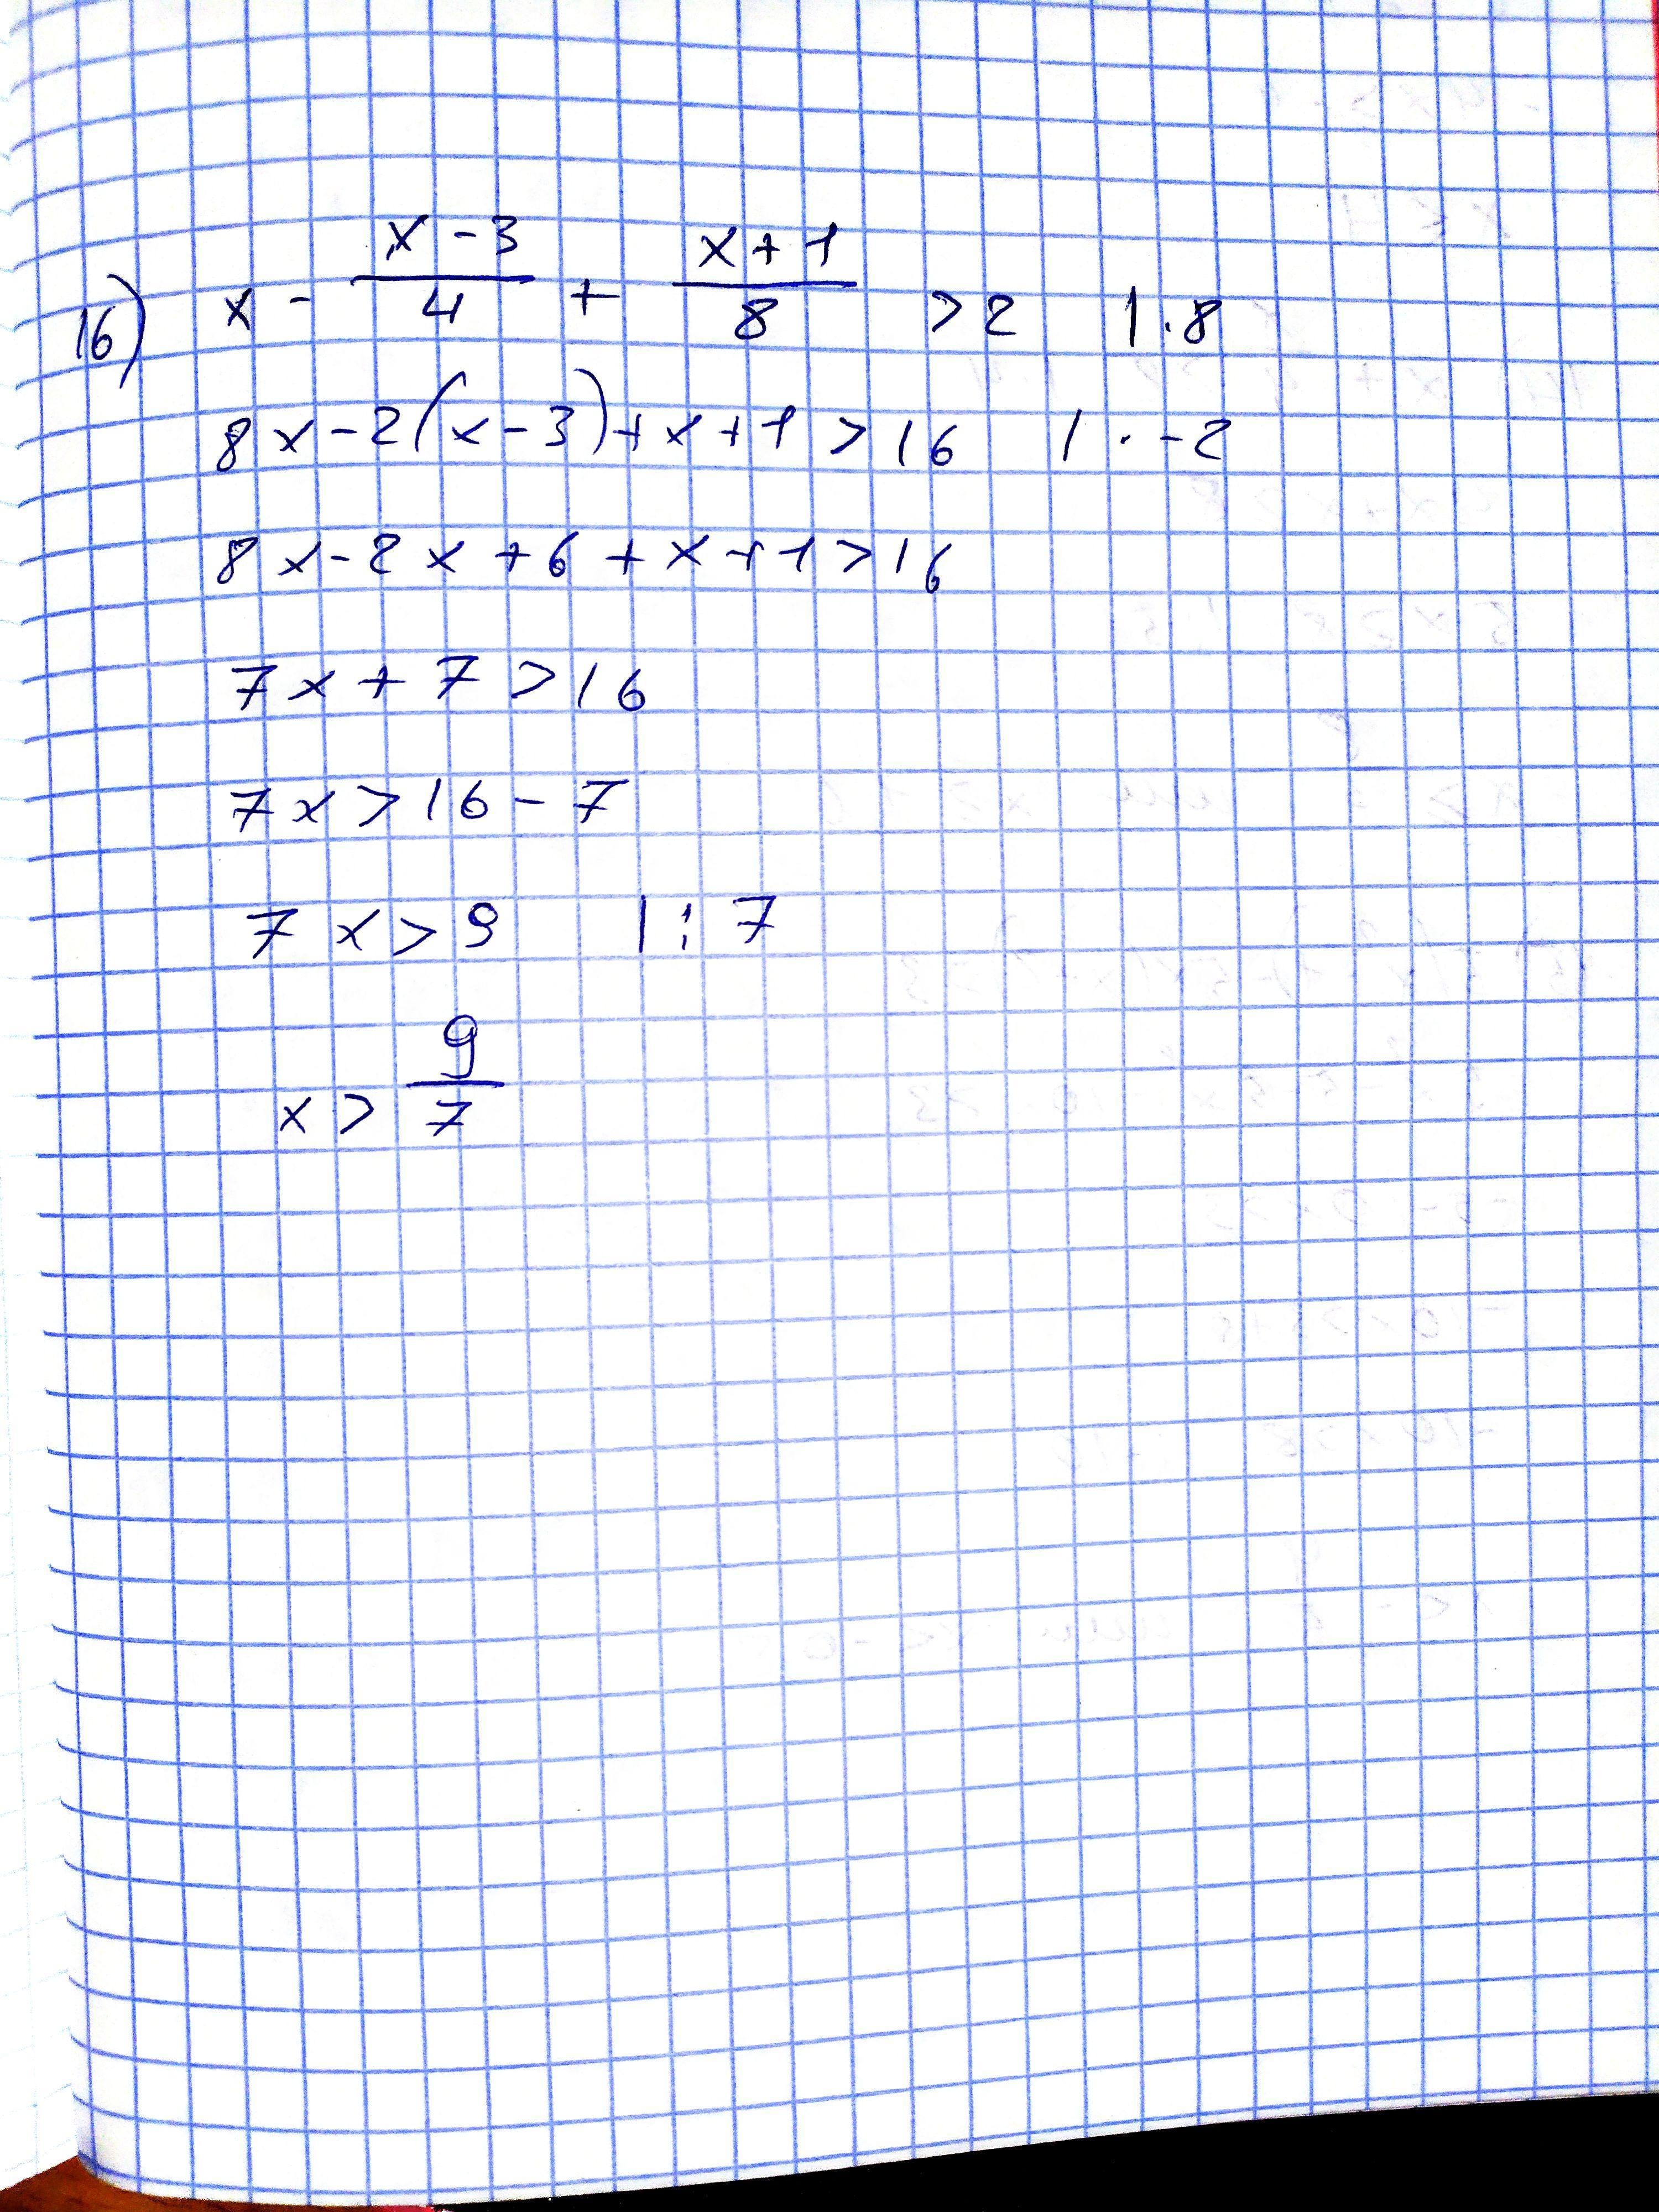 16) x - \frac{x-3}{4} + \frac{x+1}{8} > 2 | · 8
8x - 2(x - 3) + x + 1 > 16 | · -2
8x - 2x + 6 + x + 1 > 16
7x + 7 > 16
7x > 16 - 7
7x > 9 | : 7
x > \frac{9}{7}